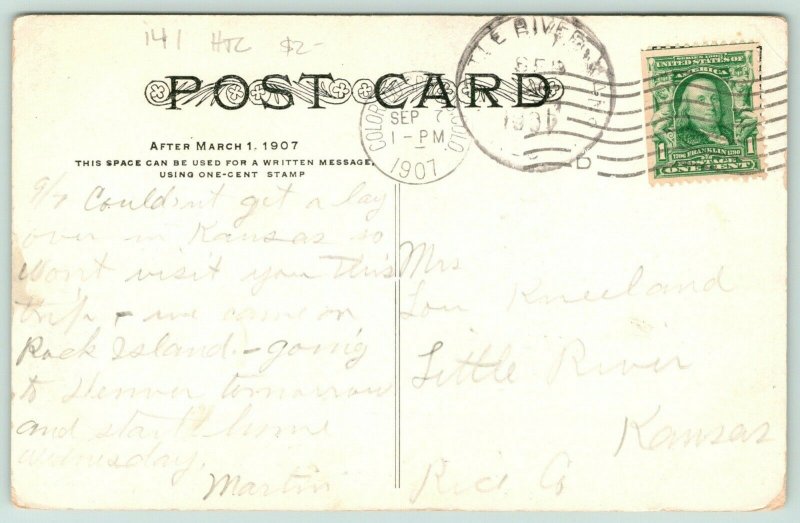 141 HTL $2-
POST CARD
AFTER MARCH 1, 1907
THIS SPACE CAN BE USED FOR A WRITTEN MESSAGE,
USING ONE-CENT STAMP
COLORADO COLO
SEP 7
1-PM
1907
TLE RIVER
SEP
D
SERIES 1902
UNITED STATES OF
AMERICA
1 1706 FRANKLIN 1790 1
POSTAGE
ONE CENT
9/7 Couldn't get a lay
over in Kansas so
Won't visit you this
trip - we came on
Rock Island. - going
to Denver tomorrow
and start home
Wednesday.
Martin
Mrs
Lou Kneeland
Little River
Kansas
Rice Co